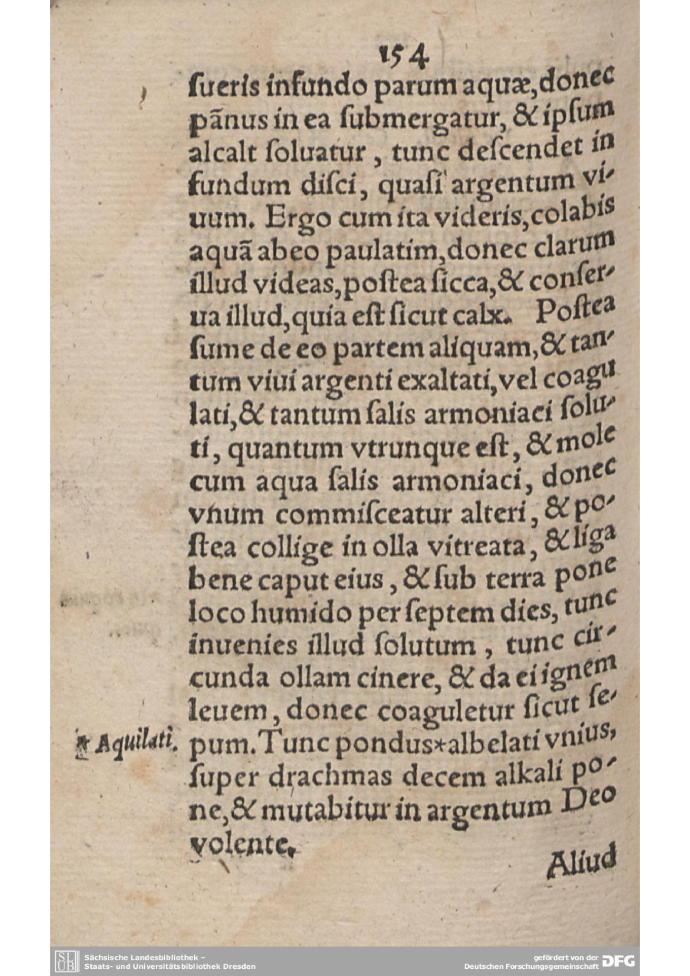 154
ſueris infundo parum aquæ, donec
pãnus in ea ſubmergatur, & ipſum
alcalt ſoluatur, tunc deſcendet in
fundum diſci, quaſi argentum vi-
uum. Ergo cum ita videris, colabis
aquã abeo paulatim, donec clarum
illud videas, poſtea ſicca, & conſer-
ua illud, quia eſt ſicut calx. Poſtea
ſume de eo partem aliquam, & tan-
tum viui argenti exaltati, vel coagu
lati, & tantum ſalis armoniaci ſolu-
ti, quantum vtrunque eſt, & mole
cum aqua ſalis armoniaci, donec
vnum commiſceatur alteri, & po-
ſtea collige in olla vitreata, & liga
bene caput eius, & ſub terra pone
loco humido per ſeptem dies, tunc
inuenies illud ſolutum, tunc cir-
cunda ollam cinere, & da ei ignem
leuem, donec coaguletur ſicut ſe-
* Aquilati.
pum. Tunc pondus*albelati vnius,
ſuper drachmas decem alkali po-
ne, & mutabitur in argentum Deo
volente.
Aliud
SLUB
Sächsische Landesbibliothek –
Staats- und Universitätsbibliothek Dresden
gefördert von der
Deutschen Forschungsgemeinschaft
DFG